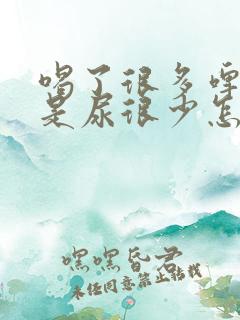 喝了很多啤
是尿很少怎
嘿嘿昏君
未经同意禁止转载